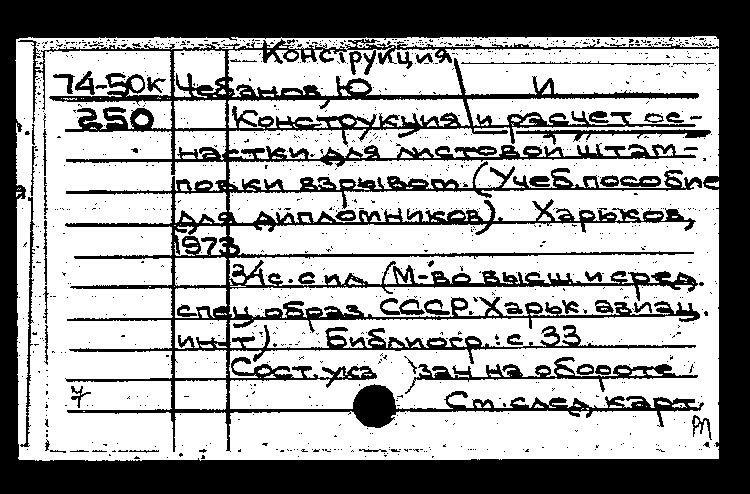 Конструкция
74-50к Чебанов, Ю И
250 Конструкция и расчет ос-
настки для листовой штам-
повки взрывом. (Учеб. пособие
для дипломников). Харьков,
1973
34с. с ил. (М-во высш. и сред.
спец. образ. СССР. Харьк. авиац.
ин-т). Библиогр.: с. 33
Сост. указан на обороте
7 См. след. карт.